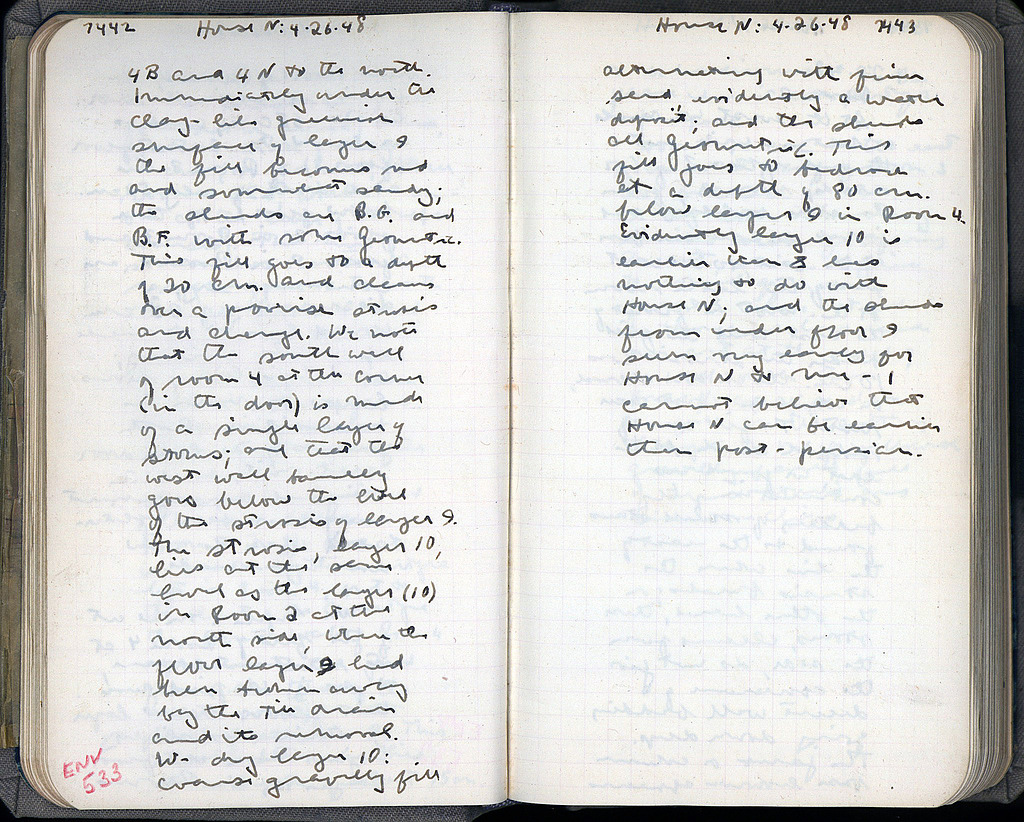 7442 House N: 4-26-48
4B and 4N to the north.
Immediately under the
clay-like greenish
surface of layer 9
the fill becomes red
and somewhat sandy;
the sherds are B.G. and
B.F. with some Geometric.
This fill goes to a depth
of 20 cm. and cleans
over a pavrise strosis
and change. We note
that the south wall
of room 4 at the corner
(in the door) is made
of a single layer of
stones; and that the
west wall barely
goes below the level
of the strosis of layer 9.
The strosis, layer 10,
lies at the same
level as the layer (10)
in Room 2 at the
north side, where the
floor layer 9 had
been broken away
by the Tile drain
and its removal.
W- dig layer 10:
coarse gravelly fill
ENV
533
House N: 4-26-48 7443
alternating with finer
sand, evidently a water
deposit; and the sherds
all Geometric. This
fill goes to bedrock
at a depth of 80 cm.
below layer 9 in Room 4.
Evidently layer 10 is
earlier than & has
nothing to do with
House N; and the sherds
from under floor 9
seem very early for
House N to me - I
cannot believe that
House N can be earlier
than post-persian.